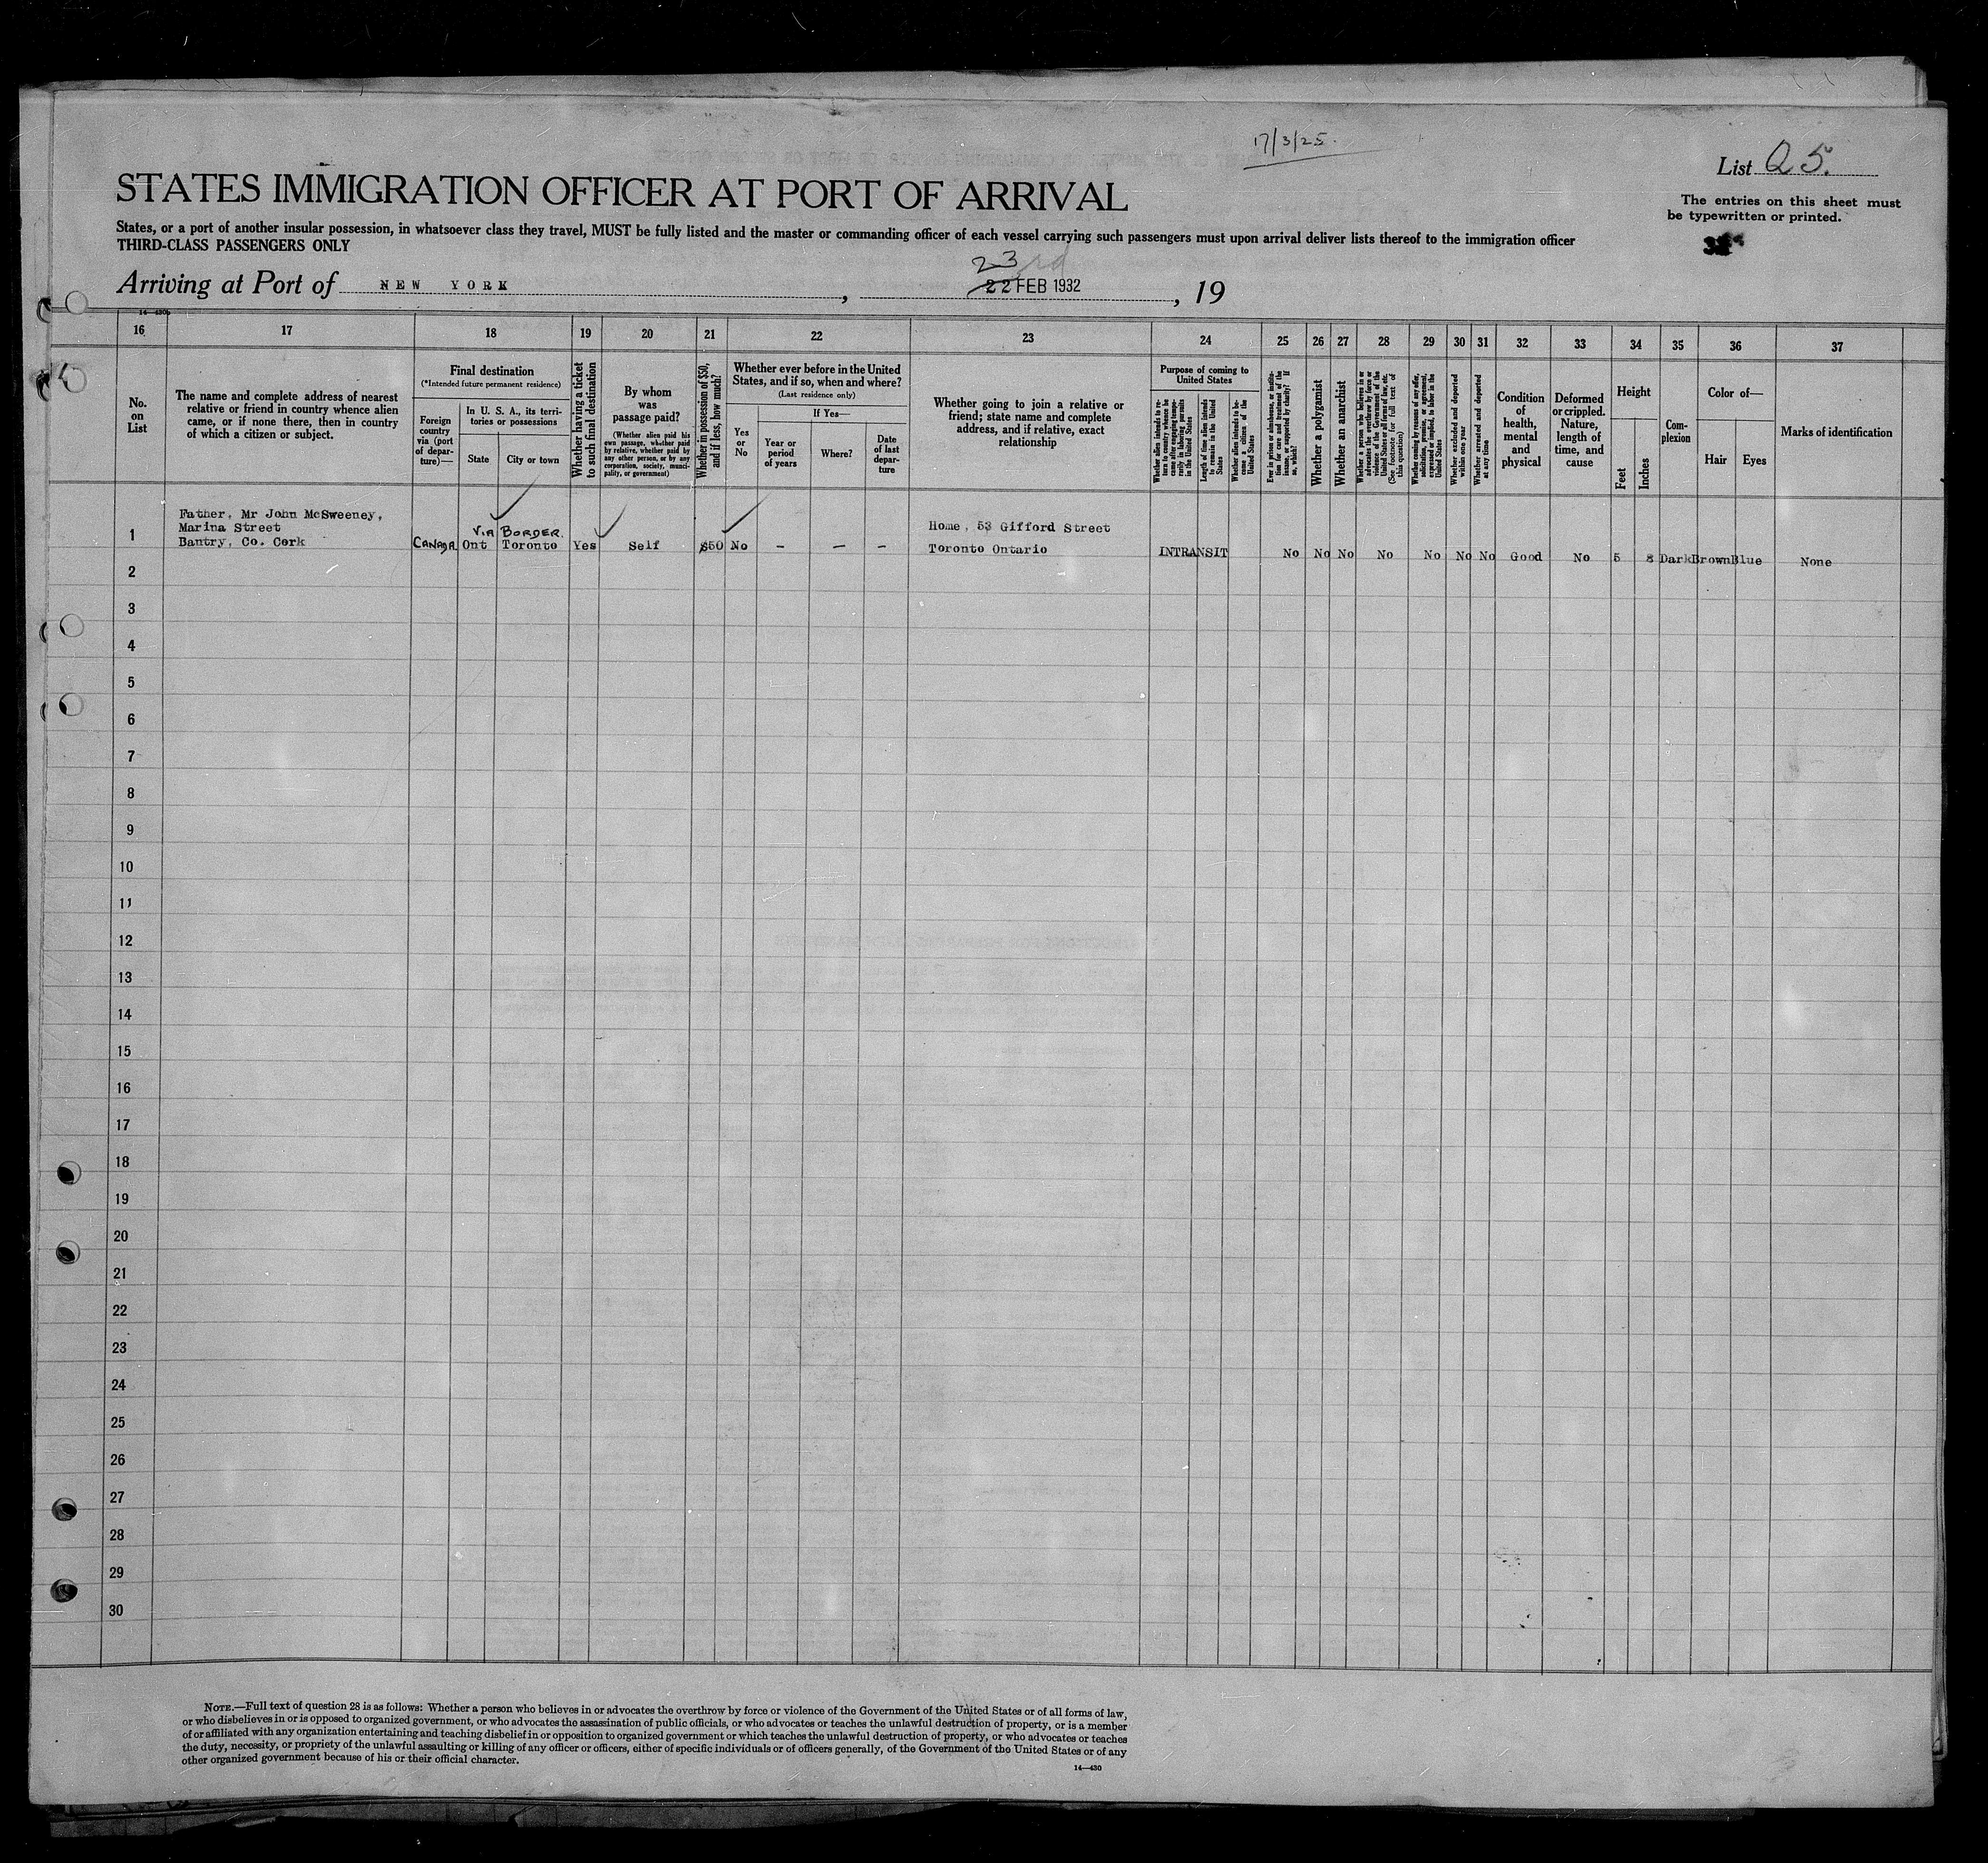 17/3/25.
List Q 5.
STATES IMMIGRATION OFFICER AT PORT OF ARRIVAL
The entries on this sheet must
be typewritten or printed.
States, or a port of another insular possession, in whatsoever class they travel, MUST be fully listed and the master or commanding officer of each vessel carrying such passengers must upon arrival deliver lists thereof to the immigration officer
THIRD-CLASS PASSENGERS ONLY
23rd
Arriving at Port of NEW YORK, 22 FEB 1932, 19
14—430b
16 17 18 19 20 21 22 23 24 25 26 27 28 29 30 31 32 33 34 35 36 37
No.
on
List
The name and complete address of nearest
relative or friend in country whence alien
came, or if none there, then in country
of which a citizen or subject.
Final destination
(*Intended future permanent residence)
Foreign
country
via (port
of depar-
ture)—
In U. S. A., its terri-
tories or possessions
State
City or town
Whether having a ticket
to such final destination
By whom
was
passage paid?
(Whether alien paid his
own passage, whether paid
by relative, whether paid by
any other person, or by any
corporation, society, munici-
pality, or government)
Whether in possession of $50,
and if less, how much?
Whether ever before in the United
States, and if so, when and where?
(Last residence only)
Yes
or
No
If Yes—
Year or
period
of years
Where?
Date
of last
depar-
ture
Whether going to join a relative or
friend; state name and complete
address, and if relative, exact
relationship
Purpose of coming to
United States
Whether alien intends to re-
turn to country whence he
came after engaging tempo-
rarily in laboring pursuits
in the United States
Length of time alien intends
to remain in the United
States
Whether alien intends to be-
come a citizen of the
United States
Ever in prison or almshouse, or institu-
tion for care and treatment of the
insane, or supported by charity? If
so, which?
Whether a polygamist
Whether an anarchist
Whether a person who believes in or
advocates the overthrow by force or
violence of the Government of the
United States or all forms of law, etc.
(See footnote for full text of
this question)
Whether coming by reason of any offer,
solicitation, promise, or agreement,
expressed or implied, to labor in the
United States
Whether excluded and deported
within one year
Whether arrested and deported
at any time
Condition
of
health,
mental
and
physical
Deformed
or crippled.
Nature,
length of
time, and
cause
Height
Feet
Inches
Com-
plexion
Color of—
Hair
Eyes
Marks of identification
Father, Mr John McSweeney,
Marina Street
Bantry, Co. Cork
VIA BORDER
1 CANADA Ont Toronto Yes Self $50 No – – –
Home, 53 Gifford Street
Toronto Ontario
INTRANSIT No No No No No No No Good No 5 8 Dark Brown Blue None
2
3
4
5
6
7
8
9
10
11
12
13
14
15
16
17
18
19
20
21
22
23
24
25
26
27
28
29
30
NOTE.—Full text of question 28 is as follows: Whether a person who believes in or advocates the overthrow by force or violence of the Government of the United States or of all forms of law,
or who disbelieves in or is opposed to organized government, or who advocates the assassination of public officials, or who advocates or teaches the unlawful destruction of property, or is a member
of or affiliated with any organization entertaining and teaching disbelief in or opposition to organized government or which teaches the unlawful destruction of property, or who advocates or teaches
the duty, necessity, or propriety of the unlawful assaulting or killing of any officer or officers, either of specific individuals or of officers generally, of the Government of the United States or of any
other organized government because of his or their official character.
14—430